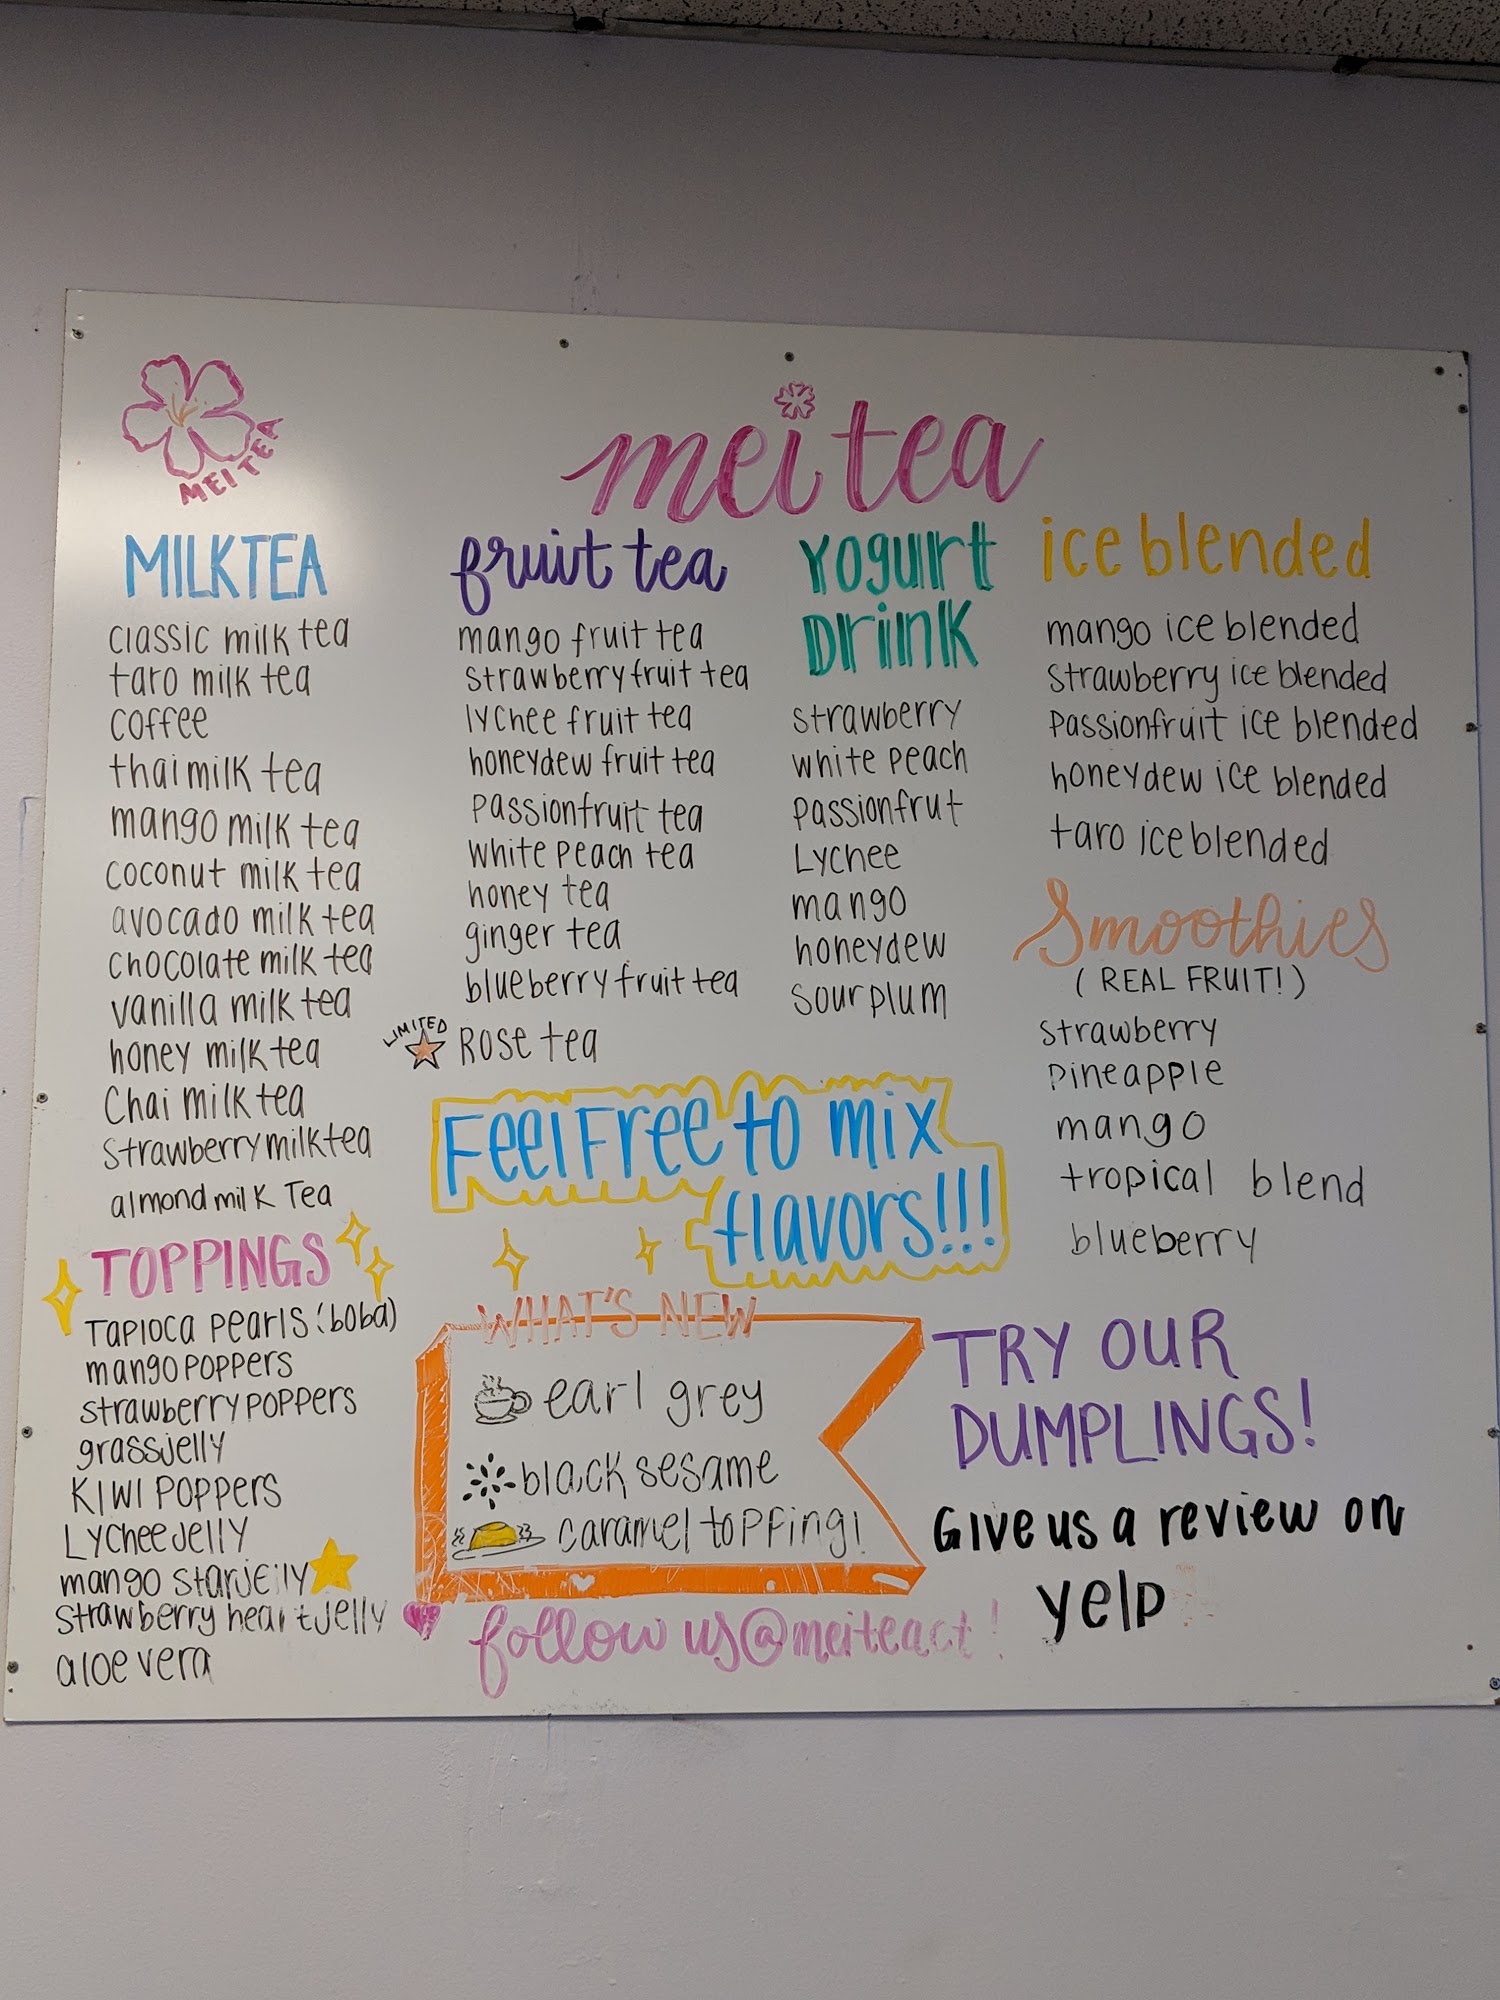 MEI TEA
mei tea
MILKTEA
classic milk tea
taro milk tea
coffee
thai milk tea
mango milk tea
coconut milk tea
avocado milk tea
chocolate milk tea
vanilla milk tea
honey milk tea
Chai milk tea
strawberry milk tea
almond milk Tea
TOPPINGS
TAPIOCA PEARLS (boba)
mango POPPERS
strawberry POPPERS
grassjelly
KIWI POPPERS
Lychee Jelly
mango starjelly
strawberry heart jelly
aloe vera
fruit tea
mango fruit tea
strawberry fruit tea
lychee fruit tea
honeydew fruit tea
passionfruit tea
white peach tea
honey tea
ginger tea
blueberry fruit tea
LIMITED
Rose tea
Yogurt
Drink
strawberry
white peach
passionfrut
Lychee
mango
honeydew
sour plum
ice blended
mango ice blended
strawberry ice blended
passionfruit ice blended
honeydew ice blended
taro ice blended
Smoothies
( REAL FRUIT! )
strawberry
pineapple
mango
tropical blend
blueberry
Feel Free to mix
flavors!!!
WHAT'S NEW
earl grey
black sesame
caramel topping!
follow us @meiteact !
TRY OUR
DUMPLINGS!
Give us a review on
yelp